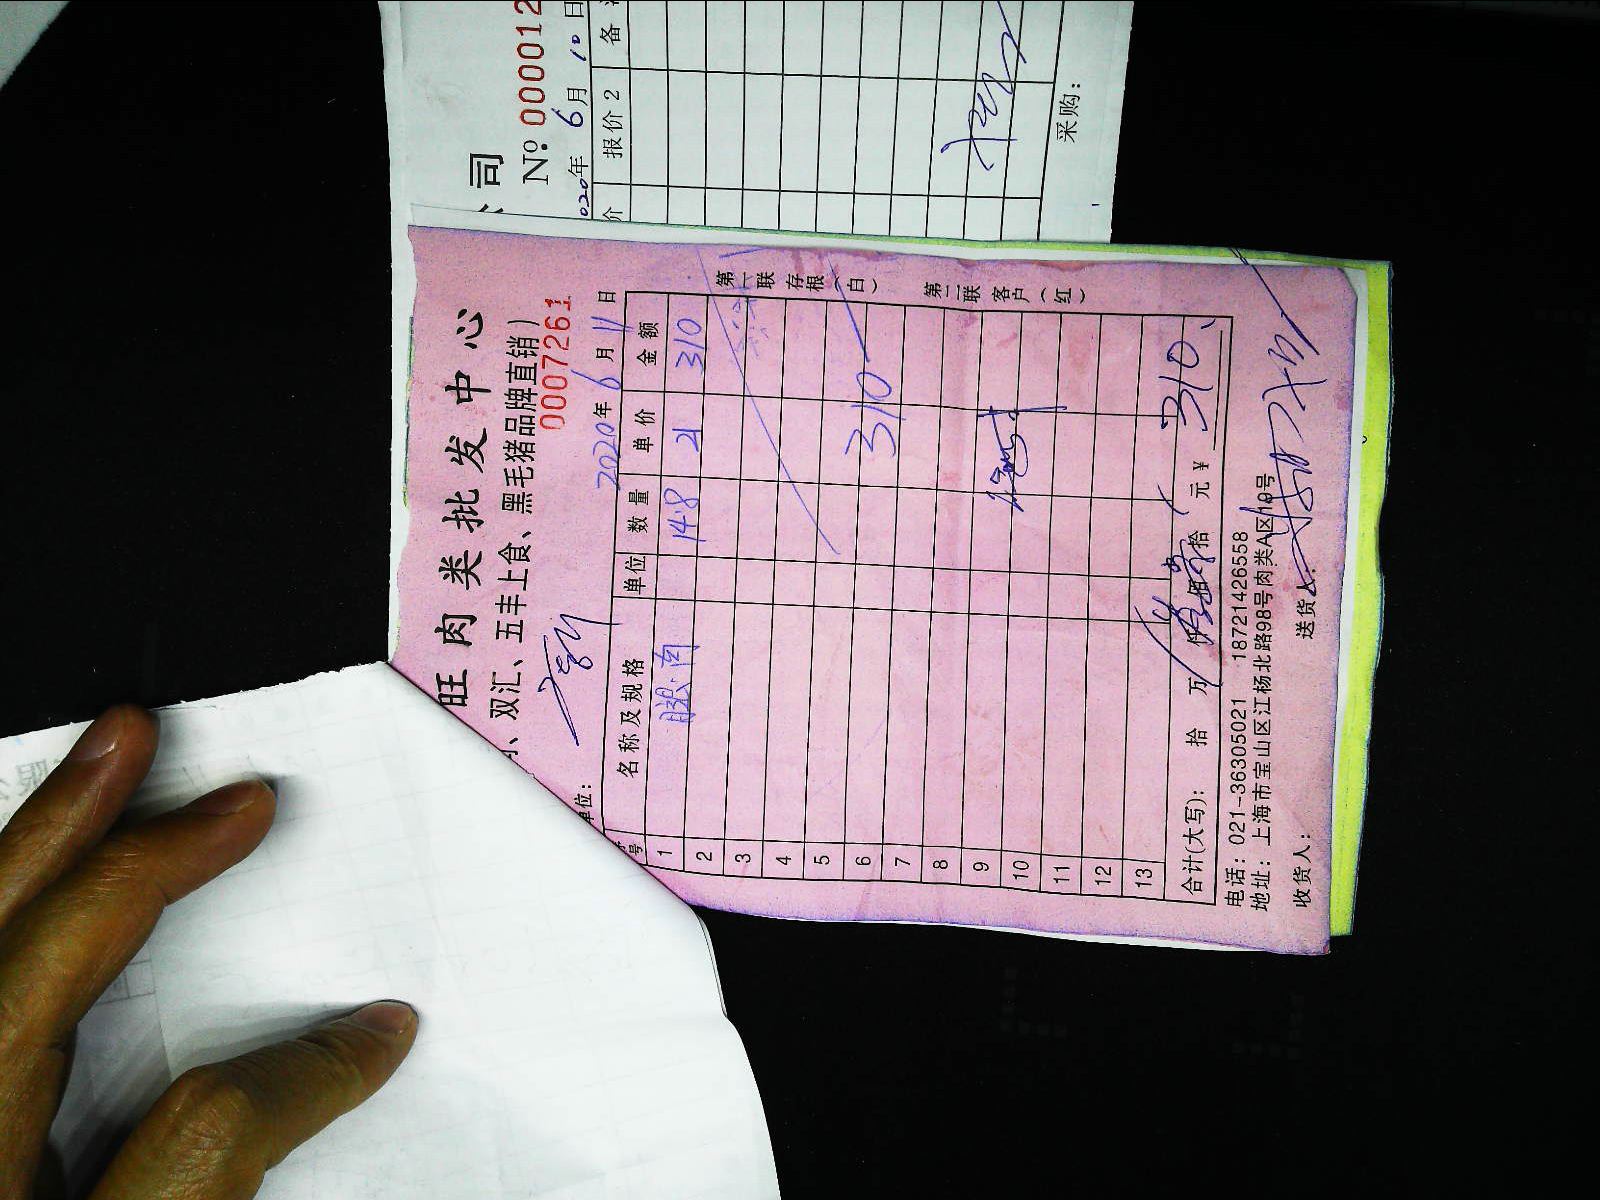 司
№ 000012
020年 6月 10日
价 报价2 备
采购：
旺肉类批发中心
、双汇、五丰上食、黑毛猪品牌直销）
0007261
单位：
2020年 6月 11日
序号 名称及规格 单位 数量 单价 金额
1 腿肉 14.8 21 310
2
3
4
5
6 310
7
8
9
10
11
12
13
合计(大写)： 拾 万 仟 佰 拾 元 ¥ 310
电话：021-36305021 18721426558
地址：上海市宝山区江杨北路98号肉类A区19号
收货人： 送货人：
第一联 存根（白）
第二联 客户（红）